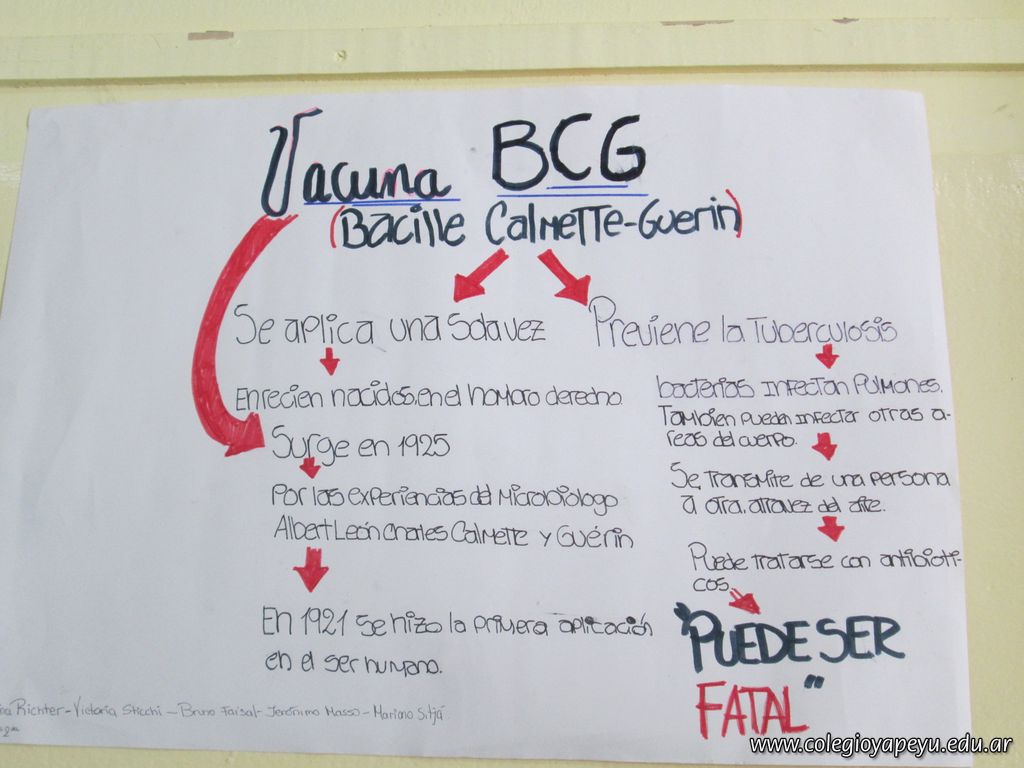 Vacuna BCG
(Bacille Calmette-Guerin)
Se aplica una sola vez
En recien nacidos, en el homoro derecho
Surge en 1925
Por las experiencias del Microbiologo
Albert León Charles Calmette y Guérin
En 1921 se hizo la primera aplicación
en el ser humano.
Previene la Tuberculosis
bacterias infectan Pulmones.
También pueden infectar otras a-
reas del cuerpo.
Se, transmite de una persona
a otra, atravez del aire.
Puede tratarse con antibioti-
cos.
"PUEDE SER
FATAL"
Richter - Victoria Sticchi - Bruno Faisal - Jerónimo Masso - Mariano Sitjá
www.colegioyapeyu.edu.ar